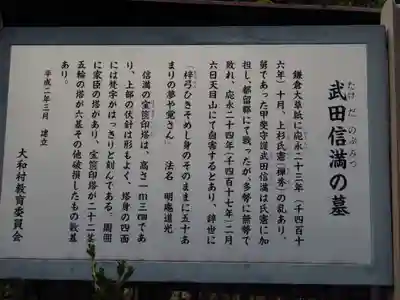 武田信満の墓
たけだ のぶみつ
鎌倉大草紙に応永二十三年(千四百十
六年)十月、上杉氏憲(禅秀)の乱あり、
舅であった甲斐守護武田信満は氏憲に加
担し、都留郡にて戦ったが、多勢に無勢で
敗れ、応永二十四年(千四百十七年)二月
六日天目山にて自害するとあり、辞世に
「梓弓ひきそめし身のそのままに五十あ
まりの夢や覚さん」 法名 明庵道光
信満の宝篋印塔は、高さ一m三cmであ
り、上部の伏鉢は形もよく、塔身の四面
には梵字がはっきりと刻んである。周囲
に家臣の塔があり、宝篋印塔が二十二基
五輪の塔が六基その他破損したもの数基
あり。
平成二年三月 建立
大和村教育委員会